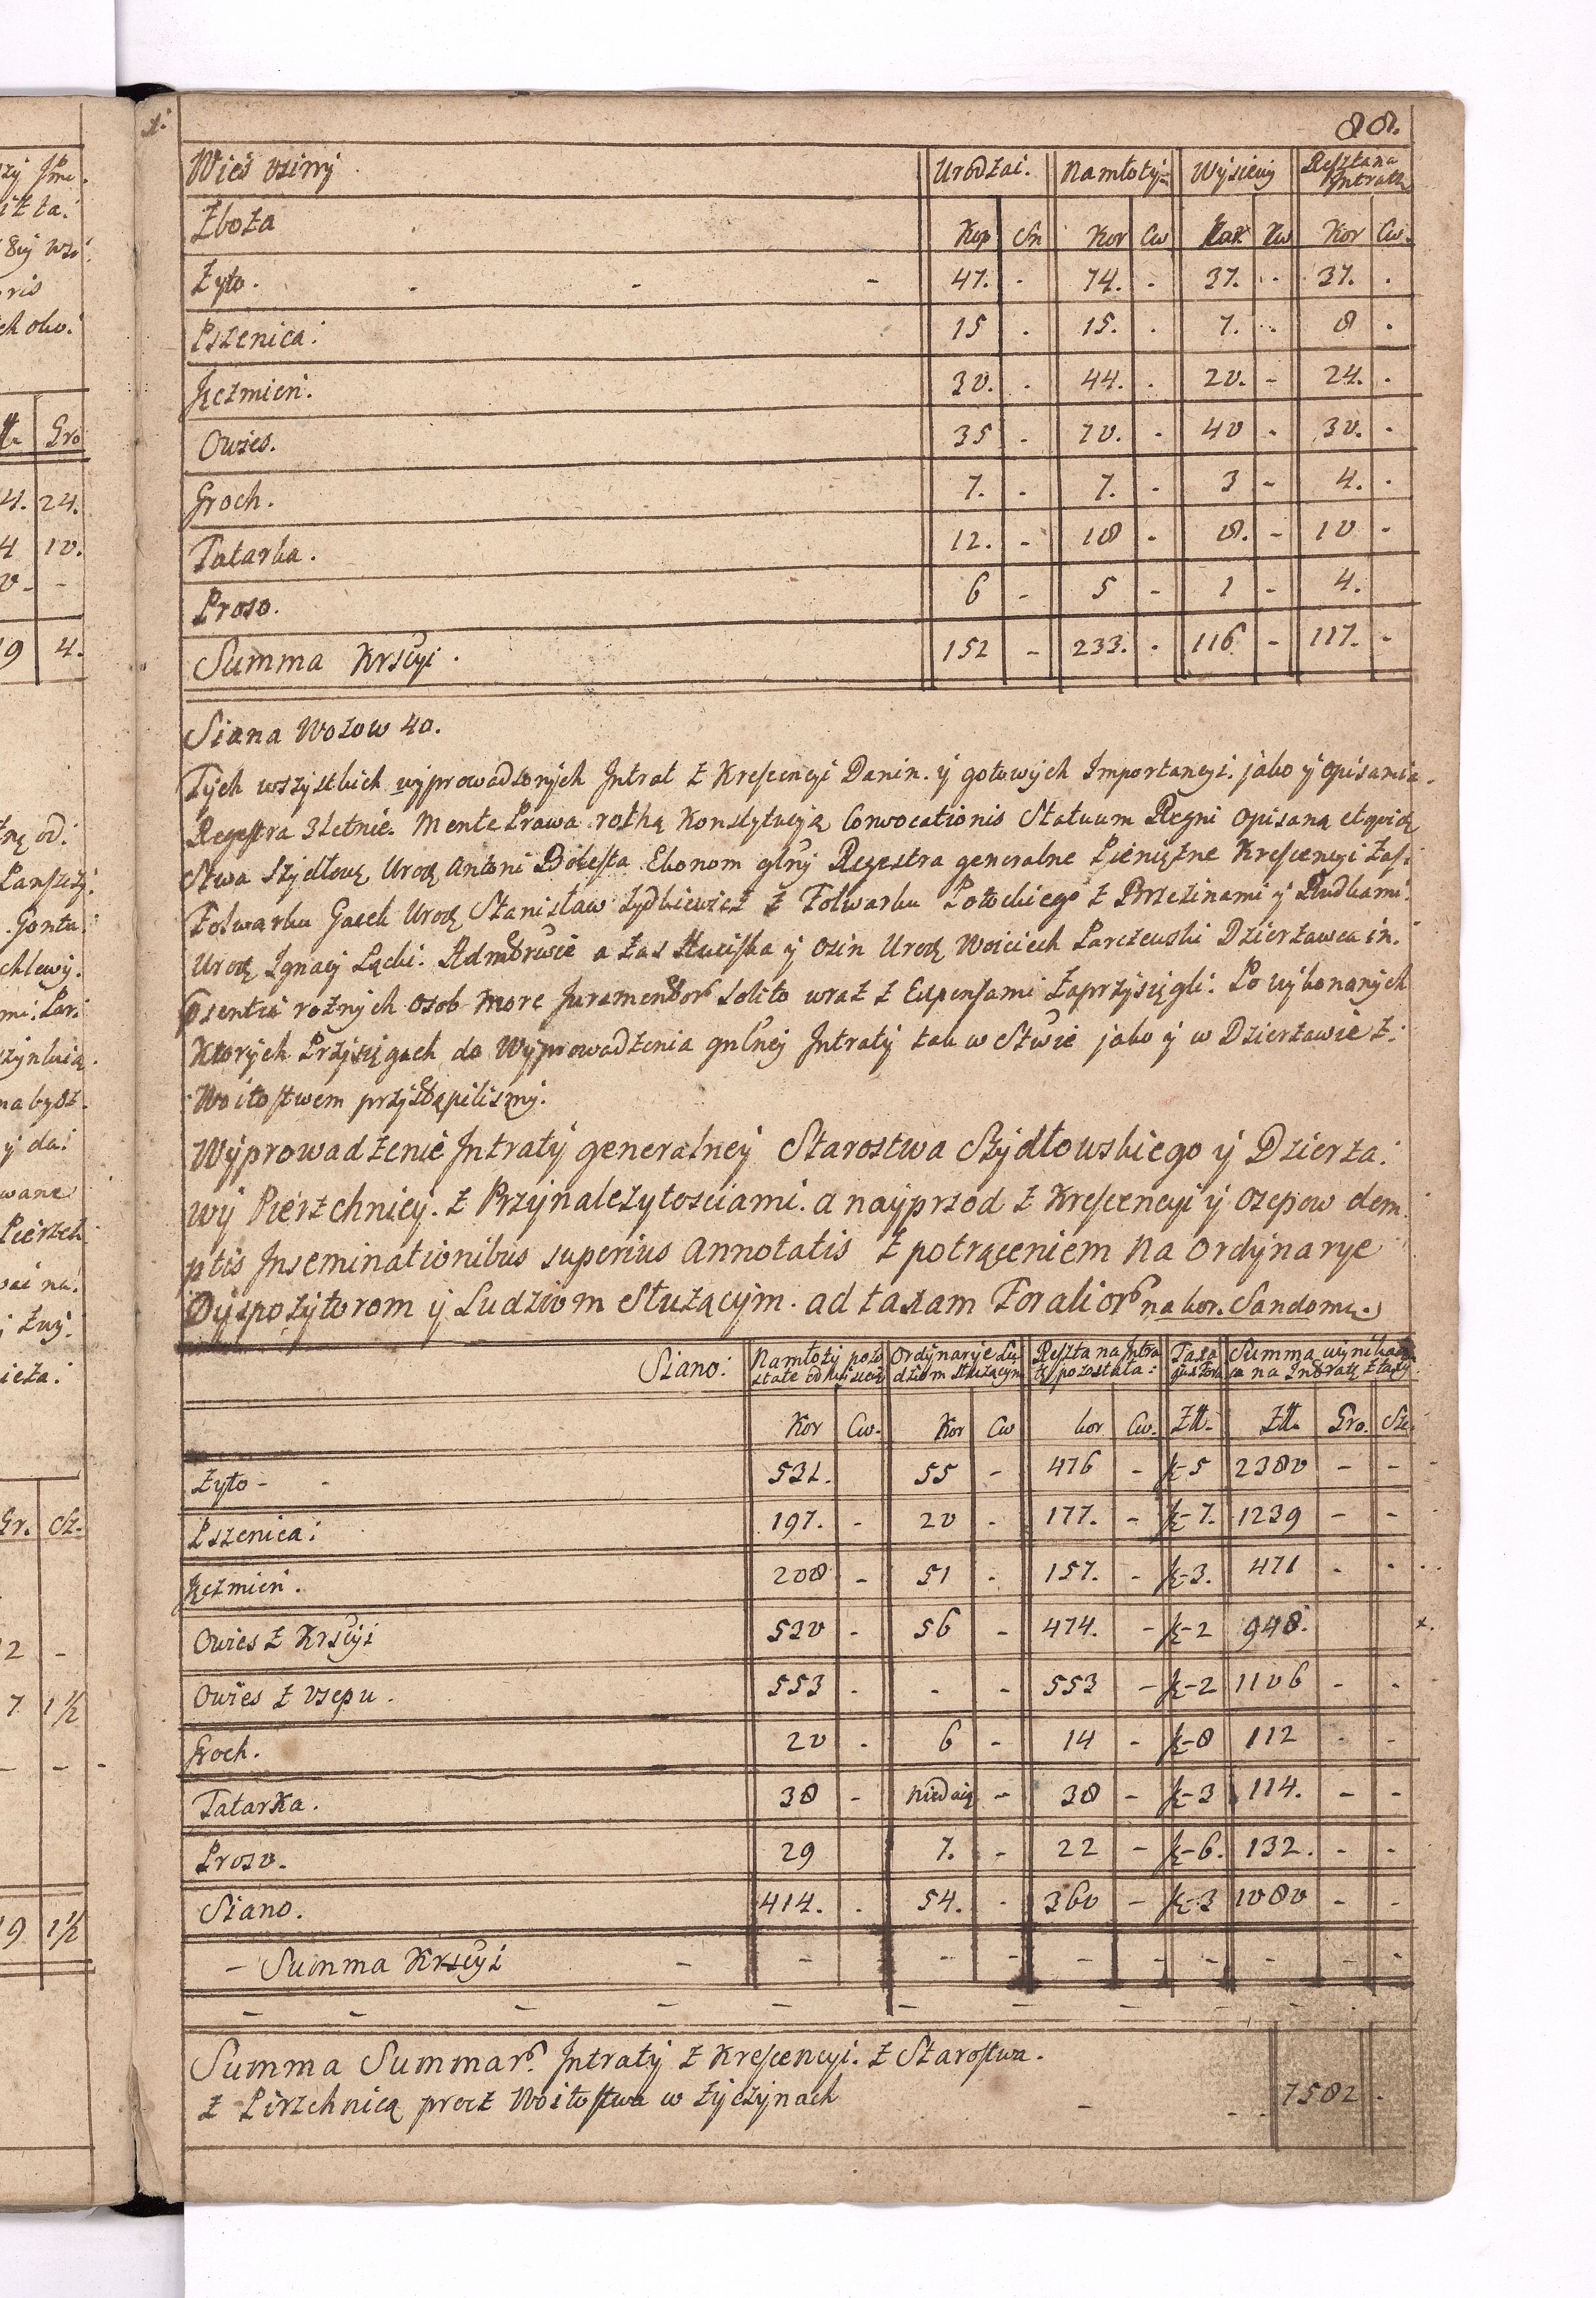 88.
Wieś osiny Urodzai. Namłoty Wysiewy Reszta na Intratę
Zboża Kop Sn Kor Cw Kor Cw Kor Cw.
Zyto. - 47. - 74. - 37. - 37. -
Pszenica: 15 - 15. - 7. - 8 -
Jęczmień. 30. - 44. - 20. - 24. -
Owies. 35 - 70. - 40 - 30. -
Groch. 7. - 7. - 3 - 4. -
Tatarka. 12. - 18 - 8. - 10 -
Proso. 6 - 5 - 1 - 4.
Summa Krscyi. 152 - 233. - 116 - 117. -
Siana Wozow 40.
Tych wszystkich wyprowadzonych Intrat z Krescencyi Danin. y gotowych Importancyi. jako y opisania.
Regestra 3letnie. Mente Prawa rothą Konstytucyą Convocationis Statuum Regni opisaną
Stwa Szydłowę Urod Antoni Bolesta Ekonom glny Regestra generalne Pieniężne Krescencyi Zas:
Folwarku Gacek Urod Stanisław Zydkiewicz z Folwarku Potockiego z Brzezinami y Rudkami.
Urod Ignacy Łącki. a zas y Osin Urod Woiciech Parczewski Dzierzawca in.
psentia roznych osob more Juramentor solito wraz z Expensami Zaprzysięgli. Po wykonanych
Ktorych Przysięgach do Wyprowadzenia gnlney Intraty tak w Stwie jako y w Dzierzawie z:
Woitostwem przystąpilismy.
Wyprowadzenie Intraty generalney Starostwa Szydłowskiego y Dzierza:
wy Pierzchnicy. z Przynalezytosciami. a nayprzod z Krescencyi y Osepow dem:
ptis Inseminationibus superius annotatis z potrąceniem na ordynarye
Dyspozytorom y Ludziom służącym. ad taxam Foralior na kor. Sandomę.
Siano: Namłoty pozostałe od wysiewu Ordynarye Ludziom służącym Reszta na Intratę pozostała: Taxa Summa wynikaiąca na Intratę z taxy
Kor Cw. Kor Cw kor Cw. Zł. Zł. Gro. Sz.
Zyto - - 531. 55 - 476 - 5 2380 - -
Pszenica: 197. - 20 - 177. - 7. 1239 - -
Jęczmień. 208 - 51 - 157. - 3. 471 - -
Owies z Krscyi 530 - 56 - 474. - 2 948.
Owies z osepu. 553 - - - 553 - 2 1106 - -
Groch. 20 - 6 - 14 - 8 112 - -
Tatarka. 38 - niedaią - 38 - 3 114. - -
Proso. 29 7. - 22 - 6. 132. - -
Siano. 414. . 54. - 360 - 3 1080 - -
- Summa Krscyi - - - - - - - - - -
Summa Summar. Intraty z Krescencyi. z Starostwa.
z Pirzchnicą procz Woitostwa w Zyczynach - - - 7582.